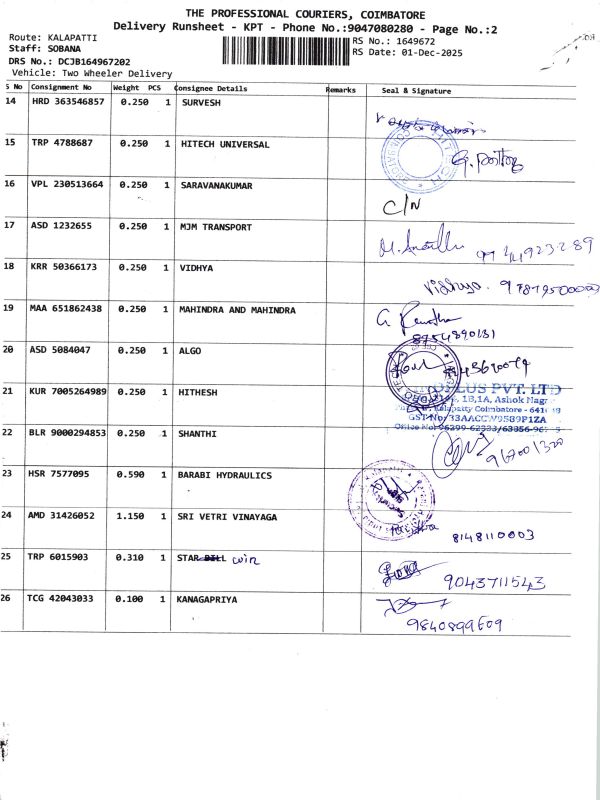 THE PROFESSIONAL COURIERS, COIMBATORE
Delivery Runsheet - KPT - Phone No.:9047080280 - Page No.:2
Route: KALAPATTI
RS No.: 1649672
Staff: SOBANA
RS Date: 01-Dec-2025
DRS No.: DCJB164967202
Vehicle: Two Wheeler Delivery
S No Consignment No Weight PCS Consignee Details Remarks Seal & Signature
14 HRD 363546857 0.250 1 SURVESH
15 TRP 4788687 0.250 1 HITECH UNIVERSAL
16 VPL 230513664 0.250 1 SARAVANAKUMAR C/N
17 ASD 1232655 0.250 1 MJM TRANSPORT
18 KRR 50366173 0.250 1 VIDHYA
19 MAA 651862438 0.250 1 MAHINDRA AND MAHINDRA
8754890131
20 ASD 5084047 0.250 1 ALGO
21 KUR 7005264989 0.250 1 HITHESH
PLUS PVT. LTD
1B,1A, Ashok Nagar
Kalapatty Coimbatore - 641
GST No: 33AACCW9589P1ZA
22 BLR 9000294853 0.250 1 SHANTHI
Office No:
23 HSR 7577095 0.590 1 BARABI HYDRAULICS
24 AMD 31426052 1.150 1 SRI VETRI VINAYAGA 8148110003
25 TRP 6015903 0.310 1 STAR BILL win
9043711543
26 TCG 42043033 0.100 1 KANAGAPRIYA
9840899609